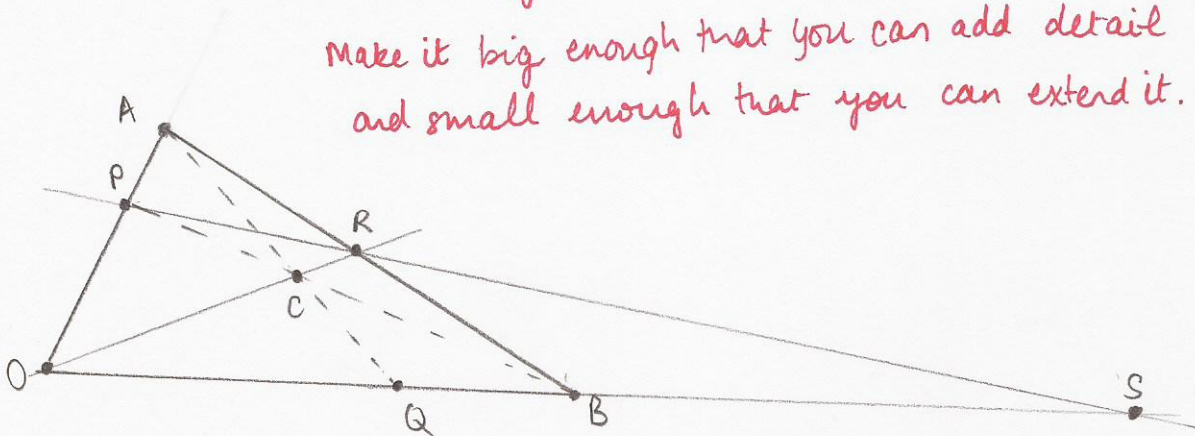 Make it big enough that you can add detail
and small enough that you can extend it.
A
P
R
C
O
Q
B
S